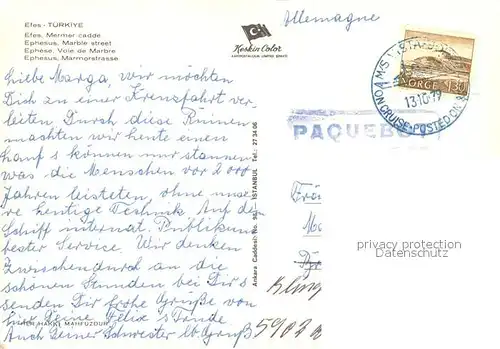 Efes - TÜRKİYE
Efes, Mermer cadde
Ephesus, Marble street
Ephèse, Voie de Marbre
Ephesus, Marmorstrasse
Keskin Color
Allemagne
NORGE 130
M/S VISTAFJORD
13.10.79
ON CRUISE · POSTED ON
PAQUEBOT
Liebe Marga, wir möchten
Dich zu einer Kreuzfahrt ver-
leiten Durch diese Ruinen
machten wir heute einen
hauf s können nur staunen
was die Menschen vor 2000
Jahren leisteten, ohne unse-
re heutige Technik Auf dem
Schiff internat. Publikum
bester Service. Wir denken
Zwischendurch an die
schönen Stunden bei Dir s
senden Dir frohe Grüße von
Deine Felix s Traude
Auch Deiner Schwester lb Gruß
HAKKI MAHFUZDUR
Ankara Caddesi No. 98 - İSTANBUL Tel.: 27 34 06
Kling
5902
privacy protection
Datenschutz